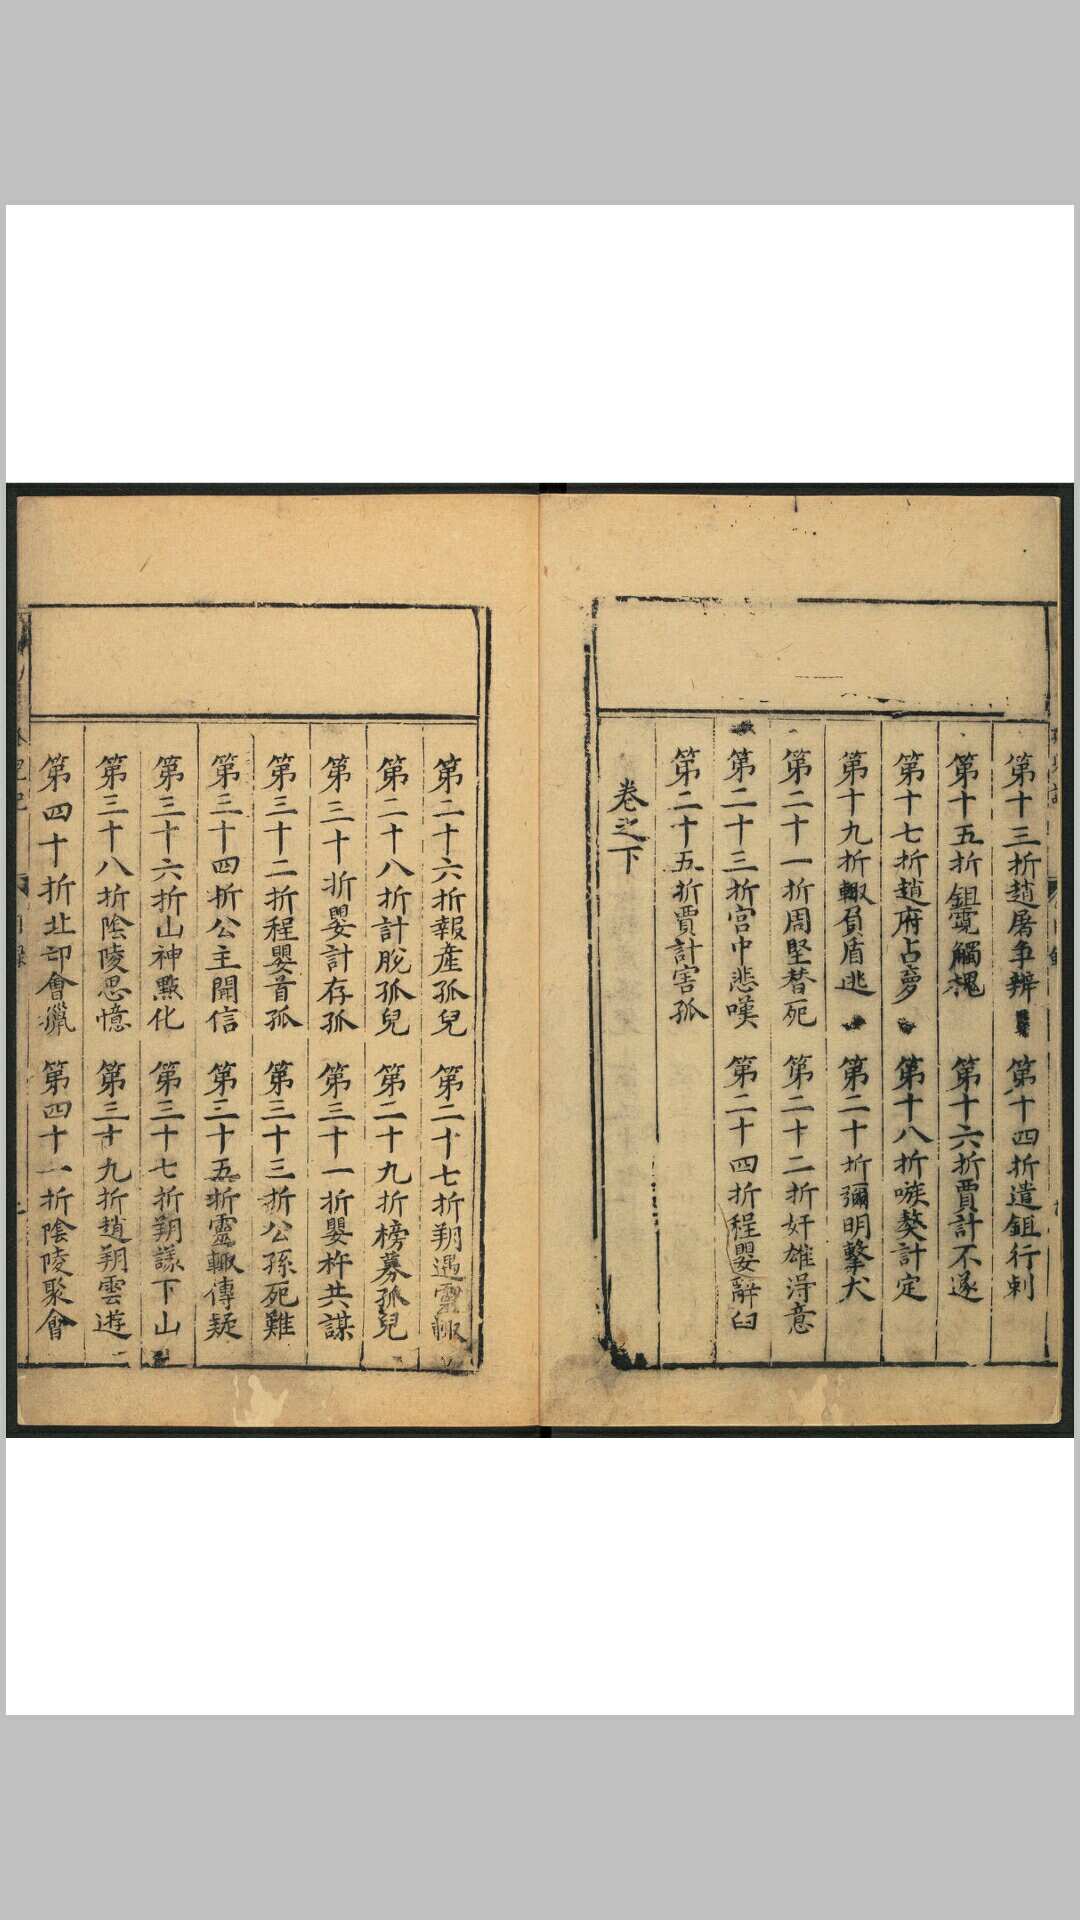 第十三折趙屠争辨　第十四折遣鉏行刺
第十五折鉏霓觸槐　第十六折賈計不遂
第十七折趙府占夢　第十八折嗾獒計定
第十九折輙負盾逃　第二十折彌明擊犬
第二十一折周堅替死　第二十二折奸雄淂意
第二十三折宫中悲嘆　第二十四折程嬰辭臼
第二十五折賈計害孤
卷之下
第二十六折報産孤兒　第二十七折朔遇靈輙
第二十八折計脫孤兒　第二十九折榜募孤兒
第三十折嬰計存孤　第三十一折嬰杵共謀
第三十二折程嬰首孤　第三十三折公孫死難
第三十四折公主聞信　第三十五折靈輙傳疑
第三十六折山神㸃化　第三十七折朔謀下山
第三十八折陰陵思憶　第三十九折趙朔雲遊
第四十折北邙會獵　第四十一折陰陵聚會